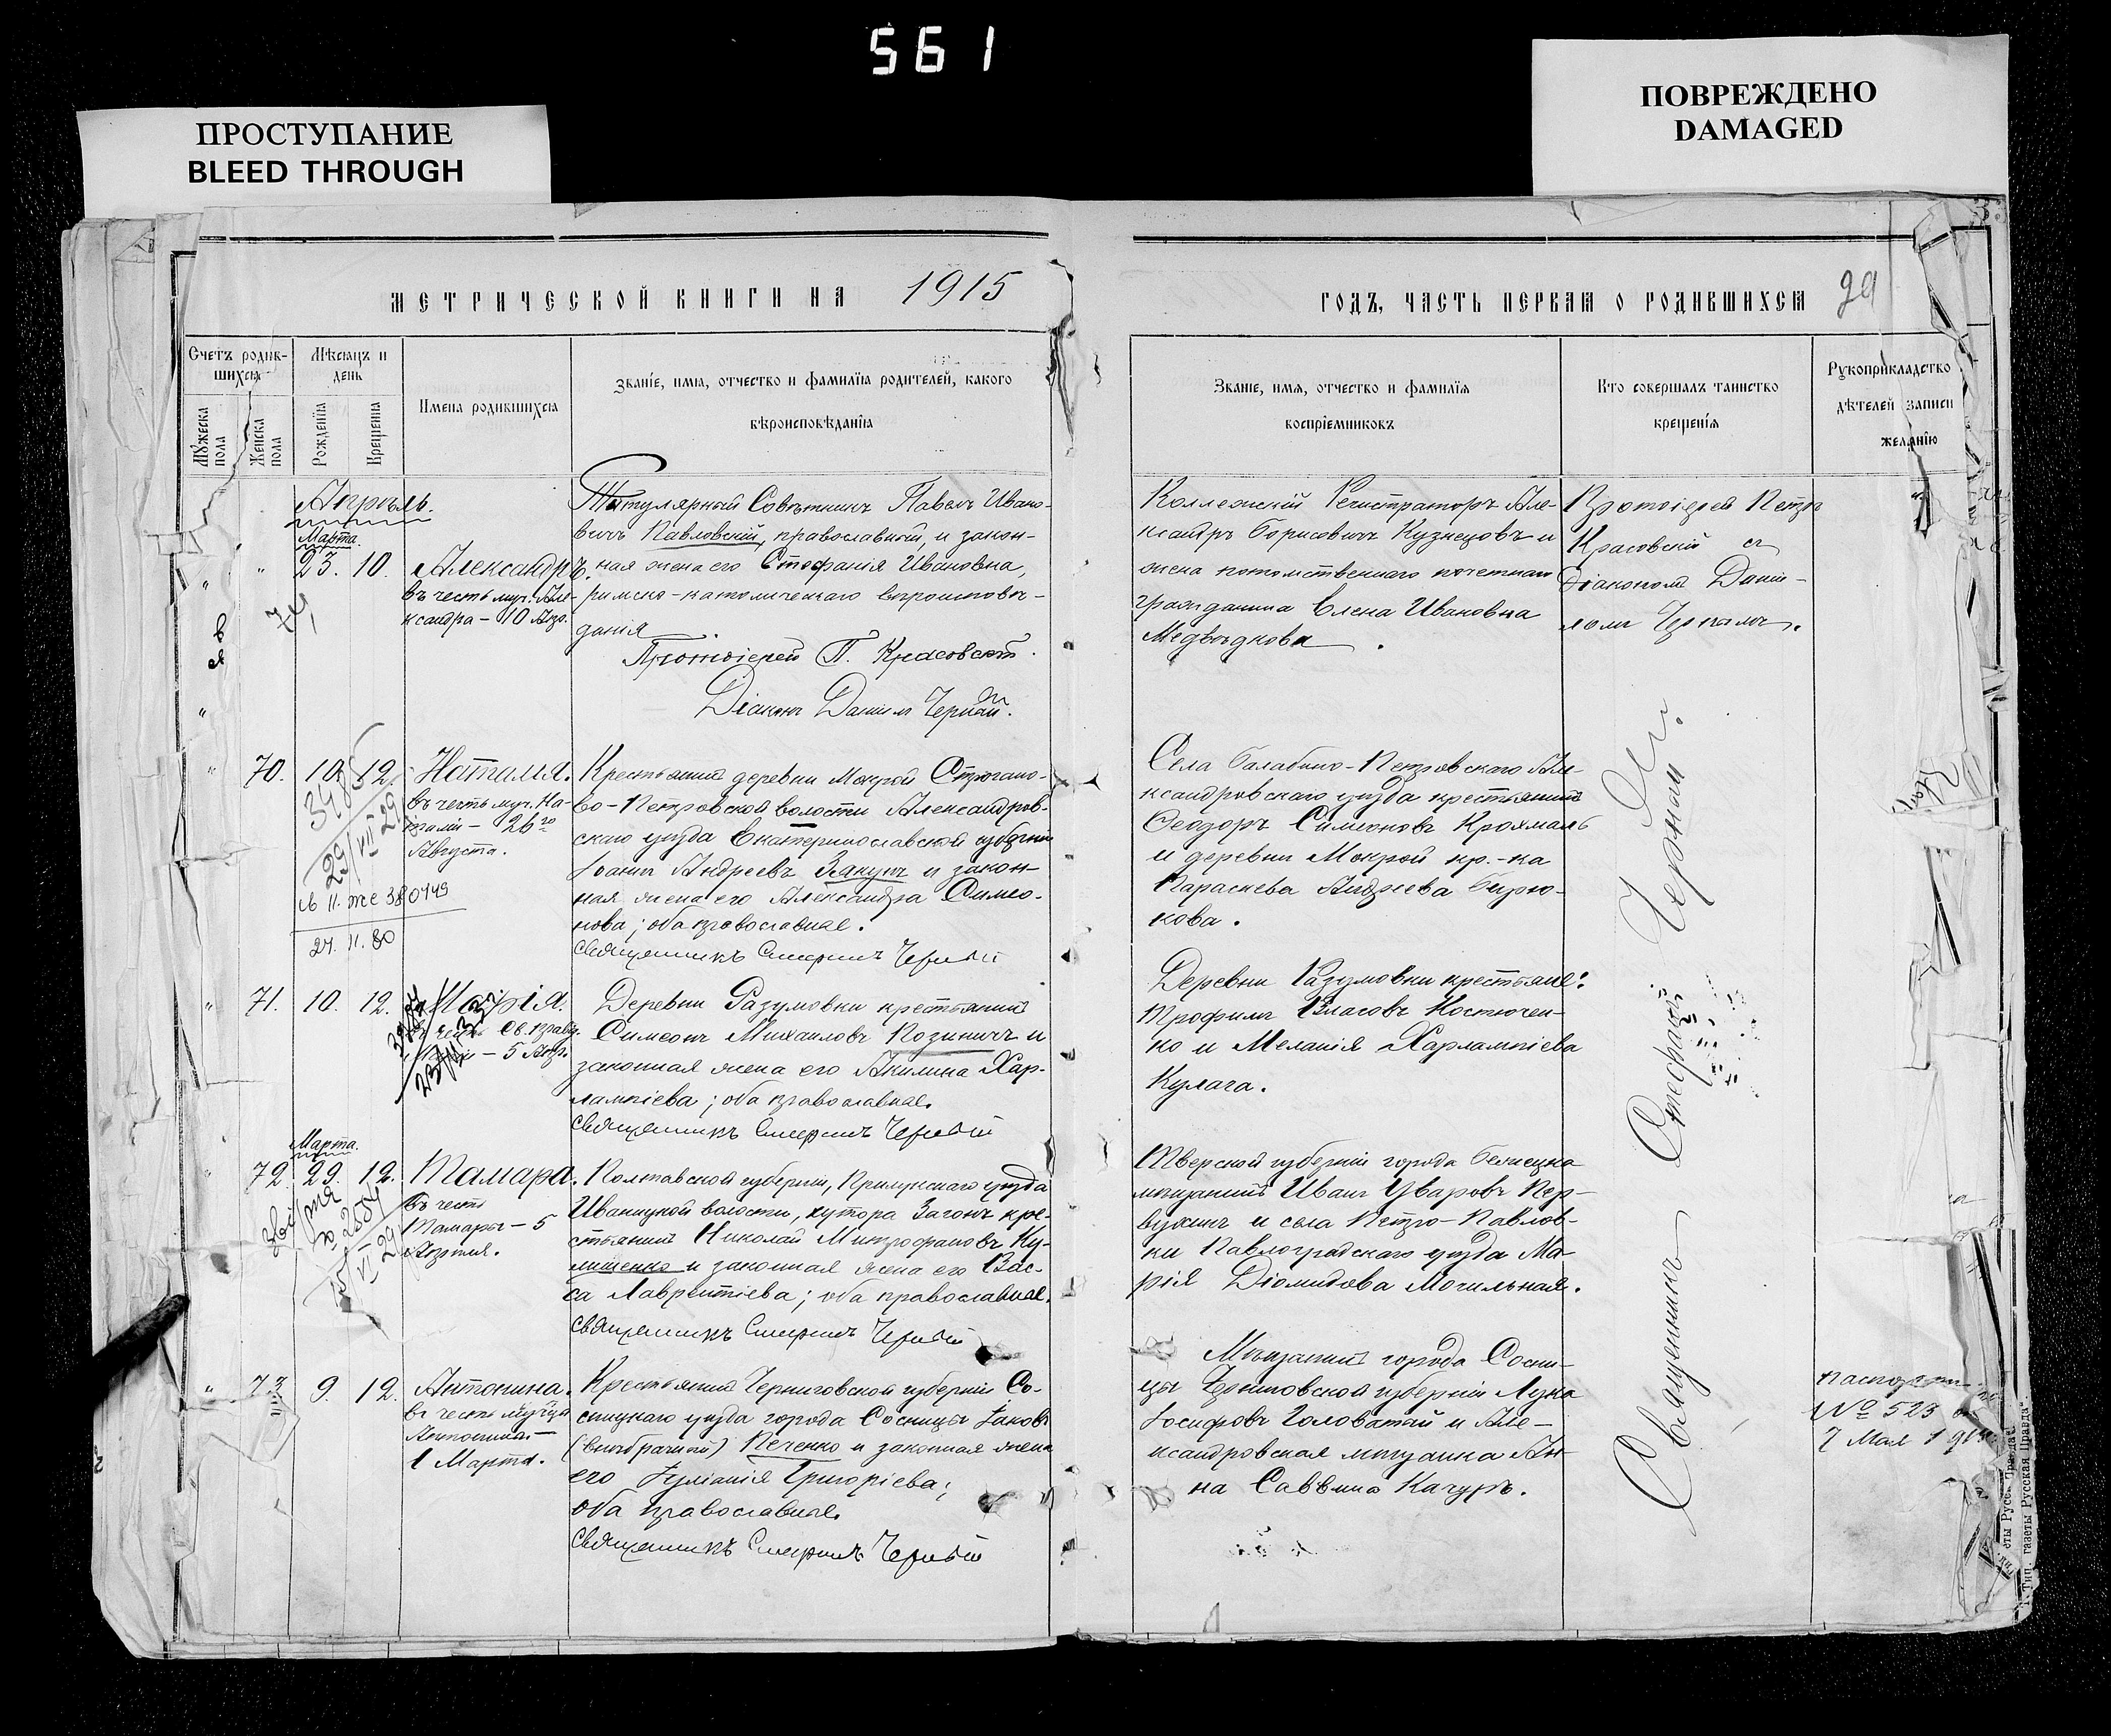 561
ПРОСТУПАНИЕ
BLEED THROUGH
ПОВРЕЖДЕНО
DAMAGED
МЕТРИЧЕСКОЙ КНИГИ НА 1915
ГОДЪ, ЧАСТЬ ПЕРВАЯ О РОДИВШИХСЯ
Счетъ родив-
шихся
Мѣсяцъ и
день
Мужеска
пола
Женска
пола
Рожденія
Крещенія
Имена родившихся
Званіе, имя, отчество и фамилія родителей, какого
вѣроисповѣданія
Званіе, имя, отчество и фамилія
воспріемниковъ
Кто совершалъ таинство
крещенія
Рукоприкладство
дѣтелей записи
желанію
Апрѣль.
Марта.
23. 10. Александръ.
въ честь муч. Але-
ксандра - 10 Апр.
Титулярный Совѣтникъ Павелъ Ивано-
вичъ Павловскій, православный, и закон-
ная жена его Стефанія Ивановна,
римско-католическаго вѣроисповѣ-
данія
Протоіерей П. Красовскій.
Діаконъ Даніилъ
Коллежскій Регистраторъ Але-
ксандръ Борисовичъ Кузнецовъ и
жена потомственнаго почетнаго
гражданина Елена Ивановна
Медвѣдкова.
Протоіерей Петръ
Красовскій съ
діакономъ Дані-
иломъ
70. 10. 12. Наталія.
въ честь муч. На-
таліи - 26го
Августа.
3485
29/VII 29
380749
27. 11. 80
Крестьянинъ деревни Мокрой Строгано-
во-Петровской волости Александров-
скаго уѣзда Екатеринославской губерніи
Іоаннъ Андреевъ и закон-
ная жена его Александра Симео-
нова; оба православные.
Священникъ Стефанъ Черный
Села Балабино-Петровскаго Але-
ксандровскаго уѣзда крестьянинъ
Ѳеодоръ Симеоновъ Крохмаль
и деревни Мокрой кр.-ка
Параскева Андреева Бирю-
кова.
71. 10. 12. Марія.
Св. прав.
5 Апр.
Деревни Разумовки крестьянинъ
Симеонъ Михаиловъ Позиничъ и
законная жена его Акилина Хар-
лампіева; оба православные.
Священникъ Стефанъ Черный
Деревни Разумовки крестьяне:
Трофимъ Власовъ Костючен-
ко и Меланія Харлампіева
Кулага.
Марта.
72. 29. 12. Тамара.
въ честь
Тамары - 5
Апрѣля.
Полтавской губерніи, Прилукскаго уѣзда
Иваницкой волости, хутора Загонъ кре-
стьянинъ Николай Митрофановъ Ку-
лишенко и законная жена его Вас-
са Лаврентіева; оба православные.
Священникъ Стефанъ Черный
Тверской губерніи города Бежецка
мѣщанинъ Иванъ Уваровъ Пер-
вухинъ и села Петро-Павлов-
ки Павлоградскаго уѣзда Ма-
рія Діомидова Могильная.
73 9. 12. Антонина.
въ честь муч-цы
Антонины -
1 Марта.
Крестьянинъ Черниговской губерніи Со-
сницкаго уѣзда города Сосницы Іаковъ
(внѣбрачный) Печенко и законная жена
его Іуліанія Григоріева;
оба православные.
Священникъ Стефанъ Черный
Мѣщанинъ города Сосни-
цы Черниговской губерніи Лука
Іосифовъ Головатый и Але-
ксандровская мѣщанка Ан-
на Саввина Качуръ.
Священникъ Стефаній Черный
паспорт
№ 523
7 Мая
Тип. газеты "Русская Правда".